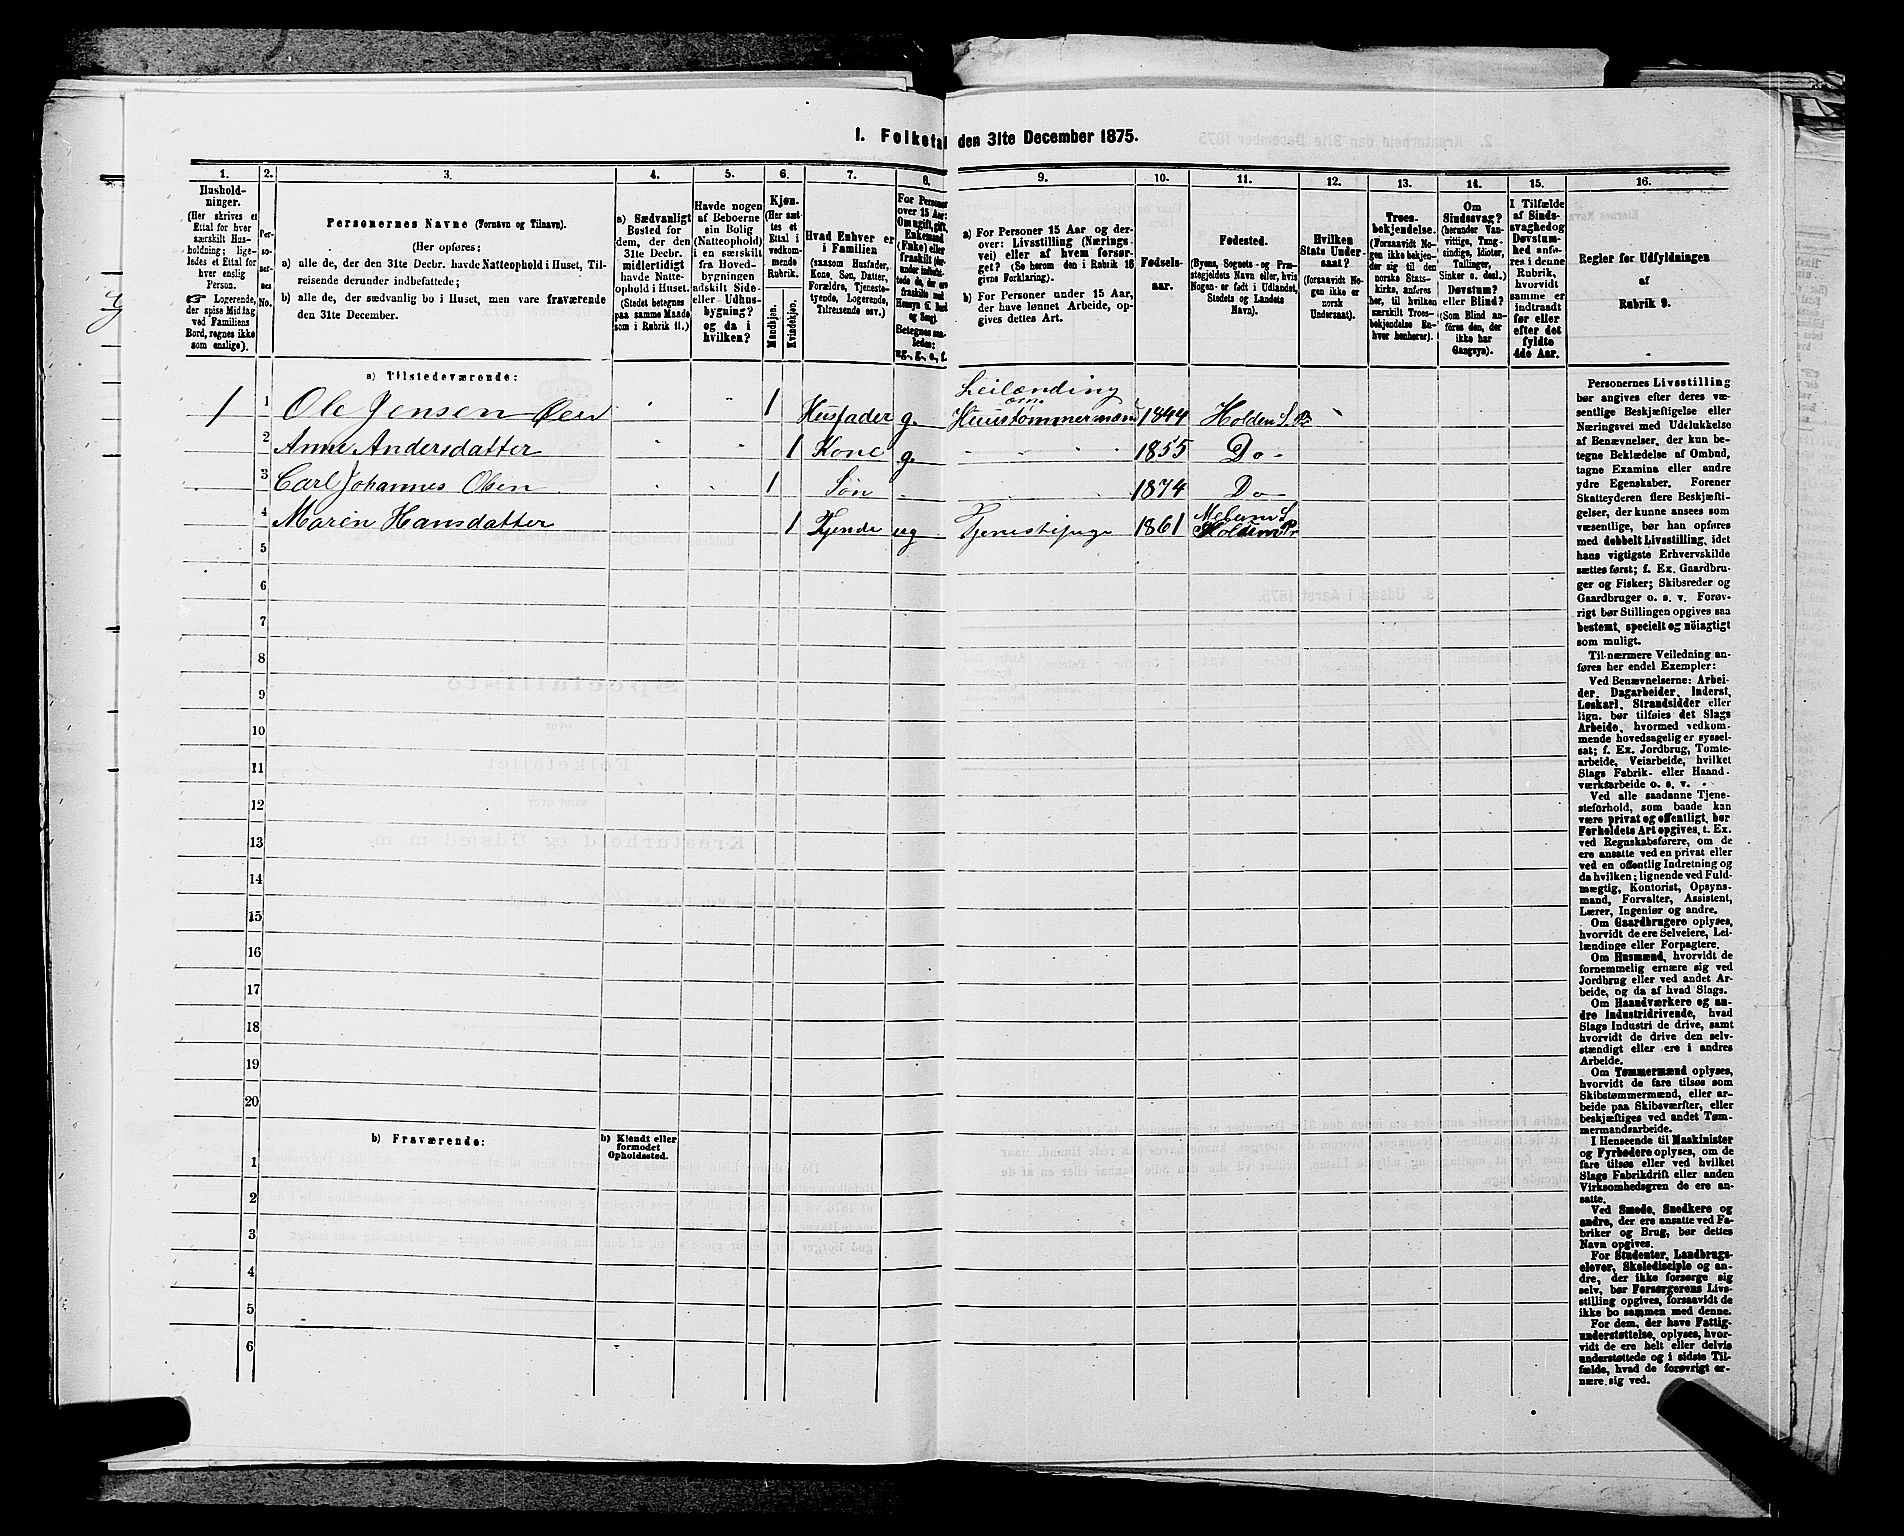 1. Folketal den 31te December 1875.
1.
2.
3.
4.
5.
6.
7.
8.
9.
10.
11.
12.
13.
14.
15.
16.
Hushold-
ninger.
(Her skrives et
Ettal for hver
særskilt Hus-
holdning; lige-
ledes et Ettal for
hver enslig
Person.
Logerende,
der spise Middag
ved Familiens
Bord, regnes ikke
som enslige).
Per-
so-
ner-
nes
No.
Personernes Navne (Fornavn og Tilnavn).
(Her opføres:
a) alle de, der den 31te Decbr. havde Natteophold i Huset, Til-
reisende derunder indbefattede;
b) alle de, der sædvanlig bo i Huset, men vare fraværende
den 31te December.
a) Sædvanligt
Bosted for
dem, der den
31te Decbr.
midlertidigt
havde Natte-
ophold i Huset.
(Stedet betegnes
paa samme Maade
som i Rubrik 11.)
Havde nogen
af Beboerne
sin Bolig
(Natteophold)
i en særskilt
fra Hoved-
bygningen
adskilt Side-
eller Udhus-
bygning?
og da i
hvilken?
Kjøn.
(Her sæt-
tes et
Ettal i
vedkom-
mende
Rubrik.
Mandkjøn.
Kvindekjøn.
Hvad Enhver er
i Familien
(saasom Husfader,
Kone, Søn, Datter,
Forældre, Tjeneste-
tyende, Logerende,
Tilreisende osv.)
For Personer
over 15 Aar:
Om ugift, gift,
Enkemand
(Enke) eller
fraskilt
Betegnes saa-
ledes:
ug., g., e., f.
a) For Personer 15 Aar og der-
over: Livsstilling (Nærings-
vei) eller af hvem forsør-
get? (Se herom den i Rubrik 16
givne Forklaring).
b) For Personer under 15 Aar,
der have lønnet Arbeide, op-
gives dettes Art.
Fødsels-
aar.
Fødested.
(Byens, Sognets- og Præ-
stegjeldets Navn eller, hvis
Nogen er født i Udlandet,
Stedets og Landets
Navn).
Hvilken
Stats Under-
saat?
(forsaavidt No-
gen ikke er
norsk
Undersaat).
Troes-
bekjendelse.
(Forsaavidt No-
gen ikke bekjen-
der sig til den
norske Stats-
kirke, anføres
her, til hvilken
særskilt Troes-
bekjendelse En-
hver henhører).
Om
Sindssvag?
(herunder Van-
vittige, Tung-
sindige, Idioter,
Tullinger,
Sinker o. desl.)
Døvstum?
eller Blind?
(Som Blind an-
føres den, der
ikke har
Gangsyn).
I Tilfælde
af Sinds-
svaghed og
Døvstum-
hed anfø-
res i denne
Rubrik,
hvorvidt
samme er
indtraadt
før eller
efter det
fyldte
4de Aar.
Regler for Udfyldningen
af
Rubrik 9.
a) Tilstedeværende:
1 1 Ole Jensen Øen 1 Husfader g. Leilænding om Huustømmermand 1844 Holden S. Pr.
2 Anne Andersdatter 1 Kone g. 1855 Do
3 Carl Johannes Olsen 1 Søn 1874 Do
4 Maren Hansdatter 1 Tjende ug Tjenestepige 1861 S Holden Pr
5
6
7
8
9
10
11
12
13
14
15
16
17
18
19
20
b) Fraværende:
b) Kjendt eller
formodet
Opholdssted.
1
2
3
4
5
6
Personernes Livsstilling
bør angives efter deres væ-
sentlige Beskjæftigelse eller
Næringsvei med Udelukkelse
af Benævnelser, der kun be-
tegne Beklædelse af Ombud,
tagne Examina eller andre
ydre Egenskaber. Forener
Skatteyderen flere Beskjæfti-
gelser, der kunne ansees som
væsentlige, bør han opføres
med dobbelt Livsstilling, idet
hans vigtigste Erhvervskilde
sættes først; f. Ex. Gaardbru-
ger og Fisker; Skibsreder og
Gaardbruger o. s. v. Forøv-
rigt bør Stillingen opgives saa
bestemt, specielt og nöiagtigt
som muligt.
Til nærmere Veiledning an-
føres her endel Exempler:
Ved Benævnelserne: Arbei-
der, Dagarbeider, Inderst,
Løskarl, Strandsidder eller
lign. bør tilføies det Slags
Arbeide, hvormed vedkom-
mende hovedsagelig er syssel-
sat; f. Ex. Jordbrug, Tomte-
arbeide, Veiarbeide, hvilket
Slags Fabrik- eller Haand-
værksarbeide o. s. v.
Ved alle saadanne Tjene-
steforhold, som baade kan
være privat og offentligt, bør
Forholdets Art opgives, t. Ex.
ved Regnskabsførere, om de
ere ansatte ved en privat eller
ved en offentlig Indretning og
da hvilken; lignende ved Fuld-
mægtig, Kontorist, Opsyns-
mand, Forvalter, Assistent,
Lærer, Ingeniør og andre.
Om Gaardbrugere oplyses,
hvorvidt de ere Selveiere, Lei-
lændinge eller Forpagtere.
Om Husmænd, hvorvidt de
fornemmelig ernære sig ved
Jordbrug eller ved andet Ar-
beide, og da af hvad Slags.
Om Haandværkere og an-
dre Industridrivende, hvad
Slags Industri de drive, samt
hvorvidt de drive den selv-
stændigt eller ere i andres
Arbeide.
Om Tømmermænd oplyses,
hvorvidt de fare tilsøs som
Skibstømmermænd, eller ar-
beide paa Skibsværfter, eller
beskjæftiges ved andet Tøm-
mermandsarbeide.
I Henseende til Maskinister
og Fyrbødere oplyses, om de
fare tilsøs eller ved hvilket
Slags Fabrikdrift eller anden
Virksomhedsgren de ere an-
satte.
Ved Smede, Snedkere og
andre, der ere ansatte ved Fa-
briker og Brug, bør dettes
Navn opgives.
For Studenter, Landbrugs-
elever, Skoledisciple og an-
dre, der ikke forsørge sig
selv, bør Forsørgerens Livs-
stilling opgives, forsaavidt de
ikke bo sammen med denne.
For dem, der have Fattig-
understøttelse, oplyses, hvor-
vidt de ere helt eller delvis
understøttede og i sidste Til-
fælde, hvad de forøvrigt er-
nære sig ved.